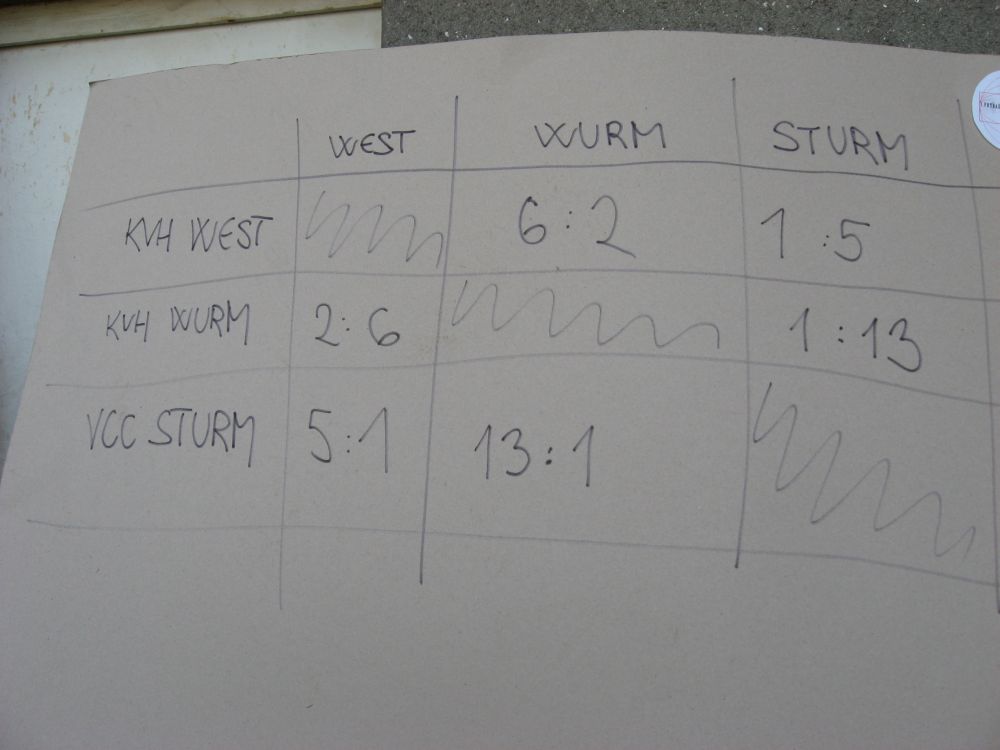 WEST WURM STURM
KVH WEST 6:2 1:5
KVH WURM 2:6 1:13
VCC STURM 5:1 13:1